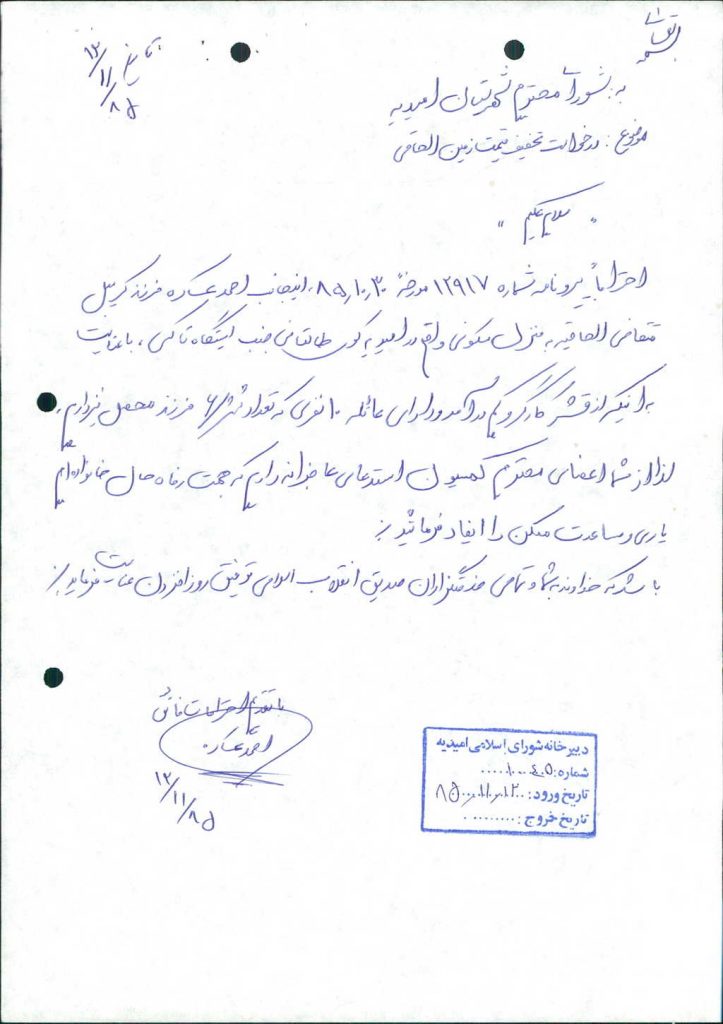 بسمه تعالی
تاریخ ۱۲/۱۱/۸۵
به: شورای محترم شهرستان امیدیه
موضوع: درخواست تخفیف قیمت زمین الحاقی
" سلام علیکم "
احتراماً پیرو نامه شماره ۱۲۹۱۷ مورخهٔ ۸۵٫۱۰٫۳۰ اینجانب احمد عساکره فرزند
متقاضی الحاقیه به منزل مسکونی واقع در امیدیه کوی طالقانی جنب ایستگاه تاکسی، با عنایت
به اینکه از قشر کارگر و کم درآمد و دارای عائله ۱۰ نفری که تعداد فرزند محصل نیز دارم
لذا از شما اعضای محترم کمسیون استدعای عاجزانه دارم که جهت رفاه حال خانواده‌ام
یاری و مساعدت ممکن را ایفاد فرمائید
باشد که خداوند به شما و تمامی خدمتگزاران صدیق انقلاب اسلامی توفیق روزافزون عنایت فرماید
با تقدیم احترامات فائق
احمد عساکره
۱۲/۱۱/۸۵
دبیرخانه شورای اسلامی امیدیه
شماره: ۱۰۰۴۰۵
تاریخ ورود: ۸۵٫۱۱٫۱۲
تاریخ خروج: .........